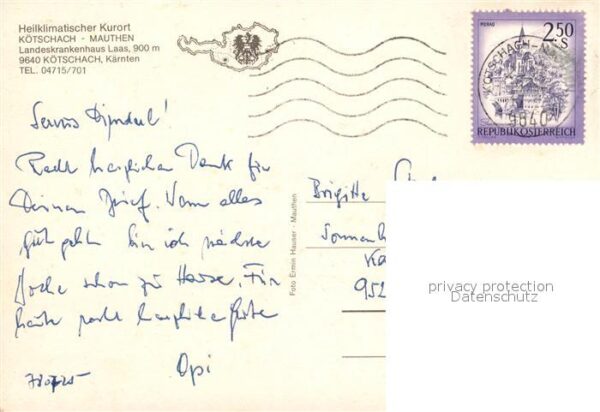 Heilklimatischer Kurort
KÖTSCHACH - MAUTHEN
Landeskrankenhaus Laas, 900 m
9640 KÖTSCHACH, Kärnten
TEL. 04715/701
MURAU
2.50
S
KÖTSCHACH-M
9640
REPUBLIK ÖSTERREICH
Servus
Recht herzlichen Dank für
Deinen Brief. Wenn alles
gut geht bin ich nächste
Woche schon zu Hause. Für
heute recht herzliche Grüße
Opi
Foto Ermin Hauser - Mauthen
Brigitte
Sonnenh
Ka
952
privacy protection
Datenschutz